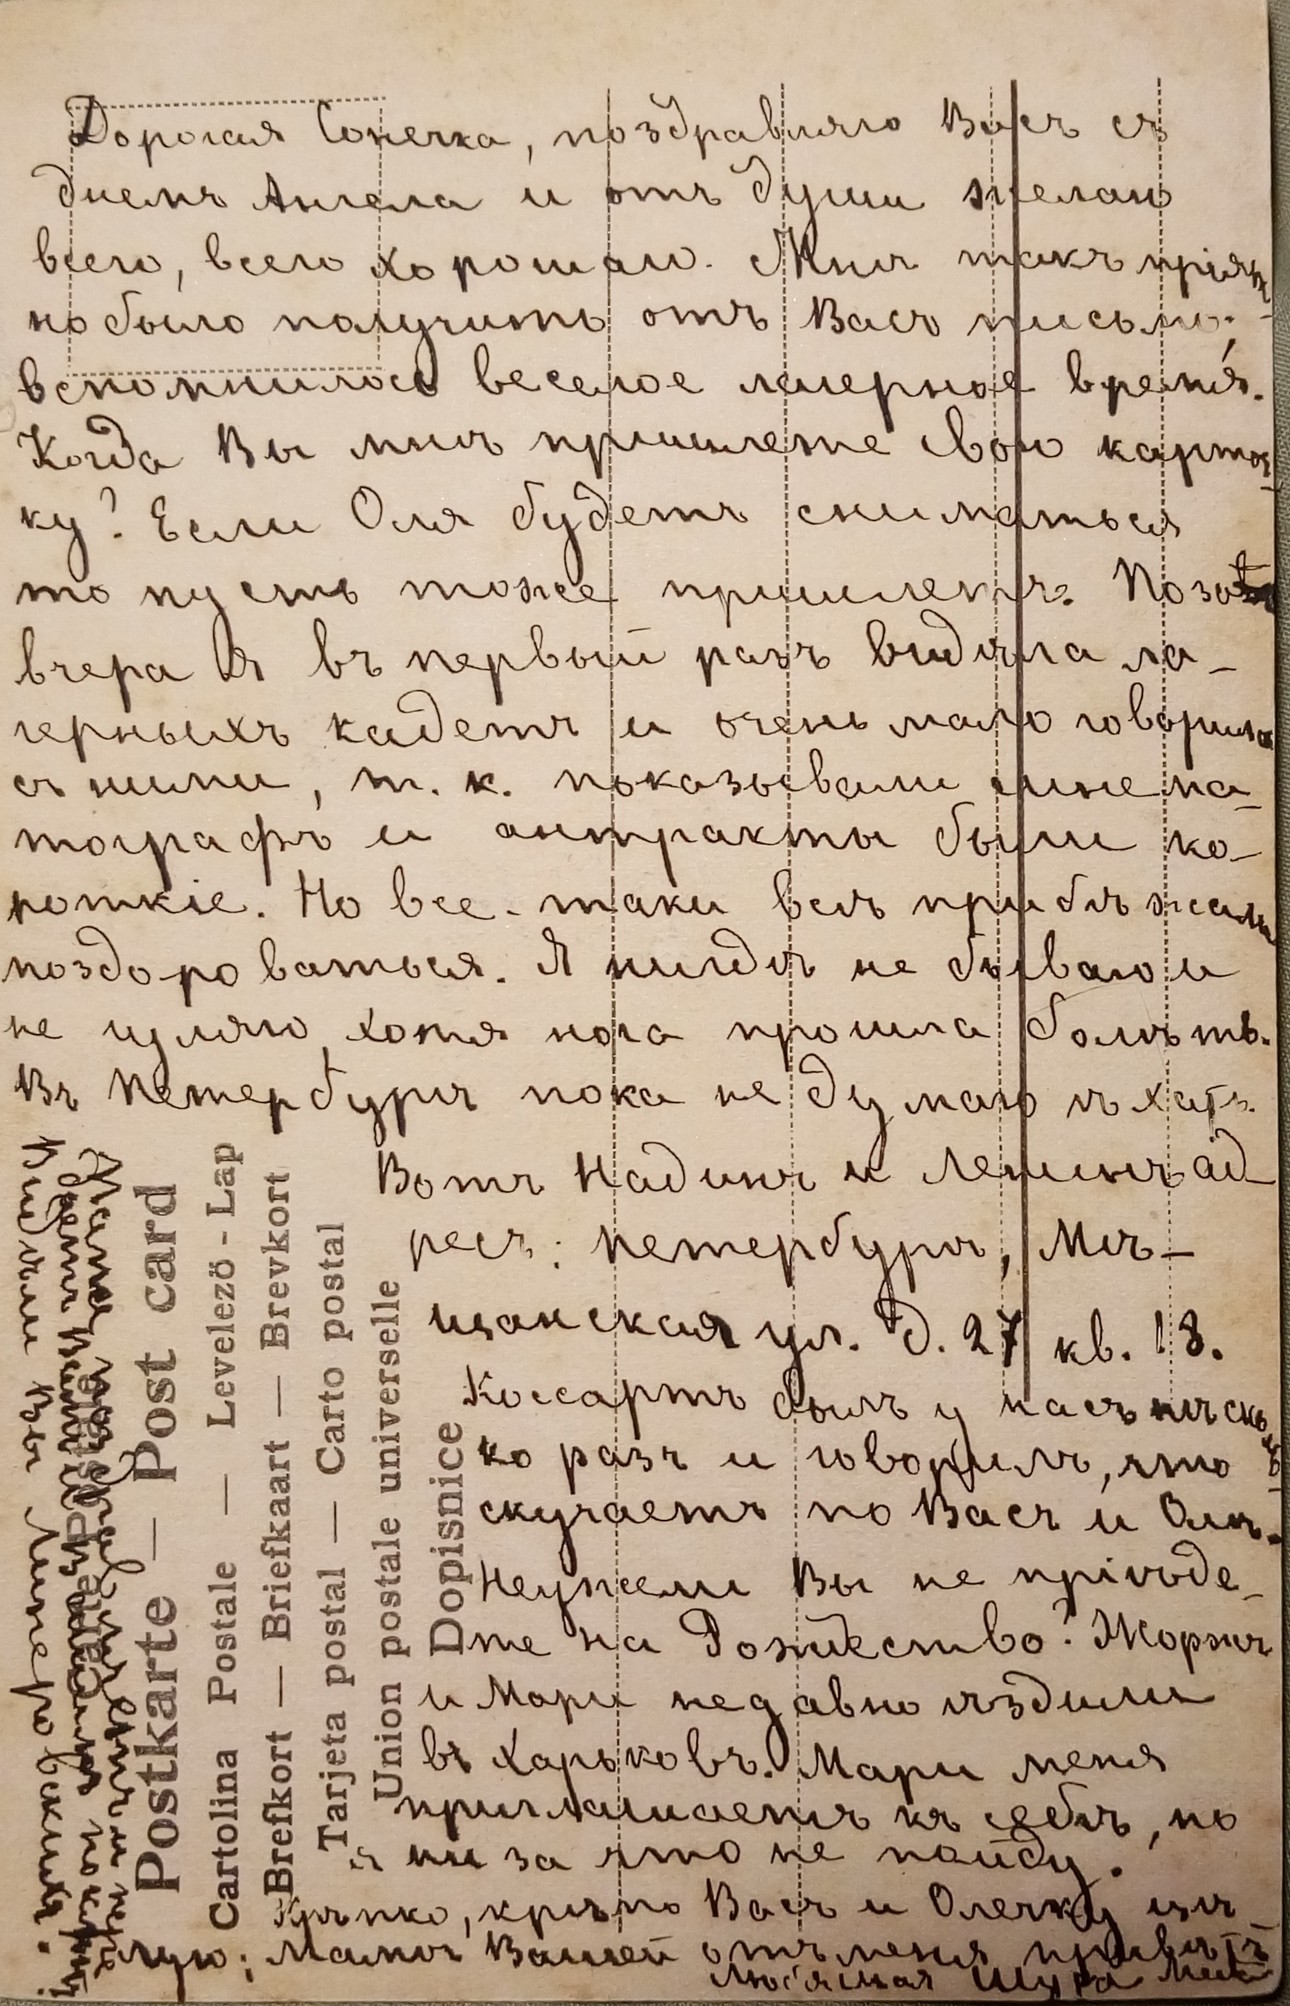 Дорогая Сонечка, поздравляю Васъ съ
днемъ Ангела и отъ души желаю
всего, всего хорошаго. Мнѣ такъ пріят-
но было получить отъ Васъ письмо;
вспомнилось веселое лагерное время.
Когда Вы мнѣ пришлете свою карточ-
ку? Если Оля будетъ сниматься
то пусть тоже пришлетъ. Позав
вчера я въ первый разъ видѣла ла-
герныхъ кадетъ и очень мало говорила
съ ними, т. к. показывали синема-
тографъ и антракты были ко-
роткіе. Но все-таки всѣ прибѣжали
поздороваться. Я нигдѣ не бываю и
не гуляю, хотя нога прошла болѣть.
Въ Петербургъ пока не думаю ѣхать.
Вотъ Надинъ и Лешинъ ад-
ресъ: Петербургъ, Мѣ-
щанская ул. д. 27 кв. 18.
Коссартъ былъ у насъ нѣсколь-
ко разъ и говорилъ, что
скучаетъ по Васъ и Олѣ.
Неужели Вы не пріѣде-
те на Рождество? Жоржъ
и Мари недавно ѣздили
въ Харьковъ. Мари меня
приглашаетъ къ себѣ, но
я ни за что не пойду.
Крѣпко, крѣпко Васъ и Олечку цѣ-
лую; Мамѣ Вашей отъ меня привѣтъ
Любящая Шура
Видѣли Вы Линеровскихъ.
Postkarte — Post card
Carte Postale
Cartolina Postale — Levelezö-Lap
Brefkort — Briefkaart — Brevkort
Tarjeta postal — Carto postal
Union postale universelle
Dopisnice